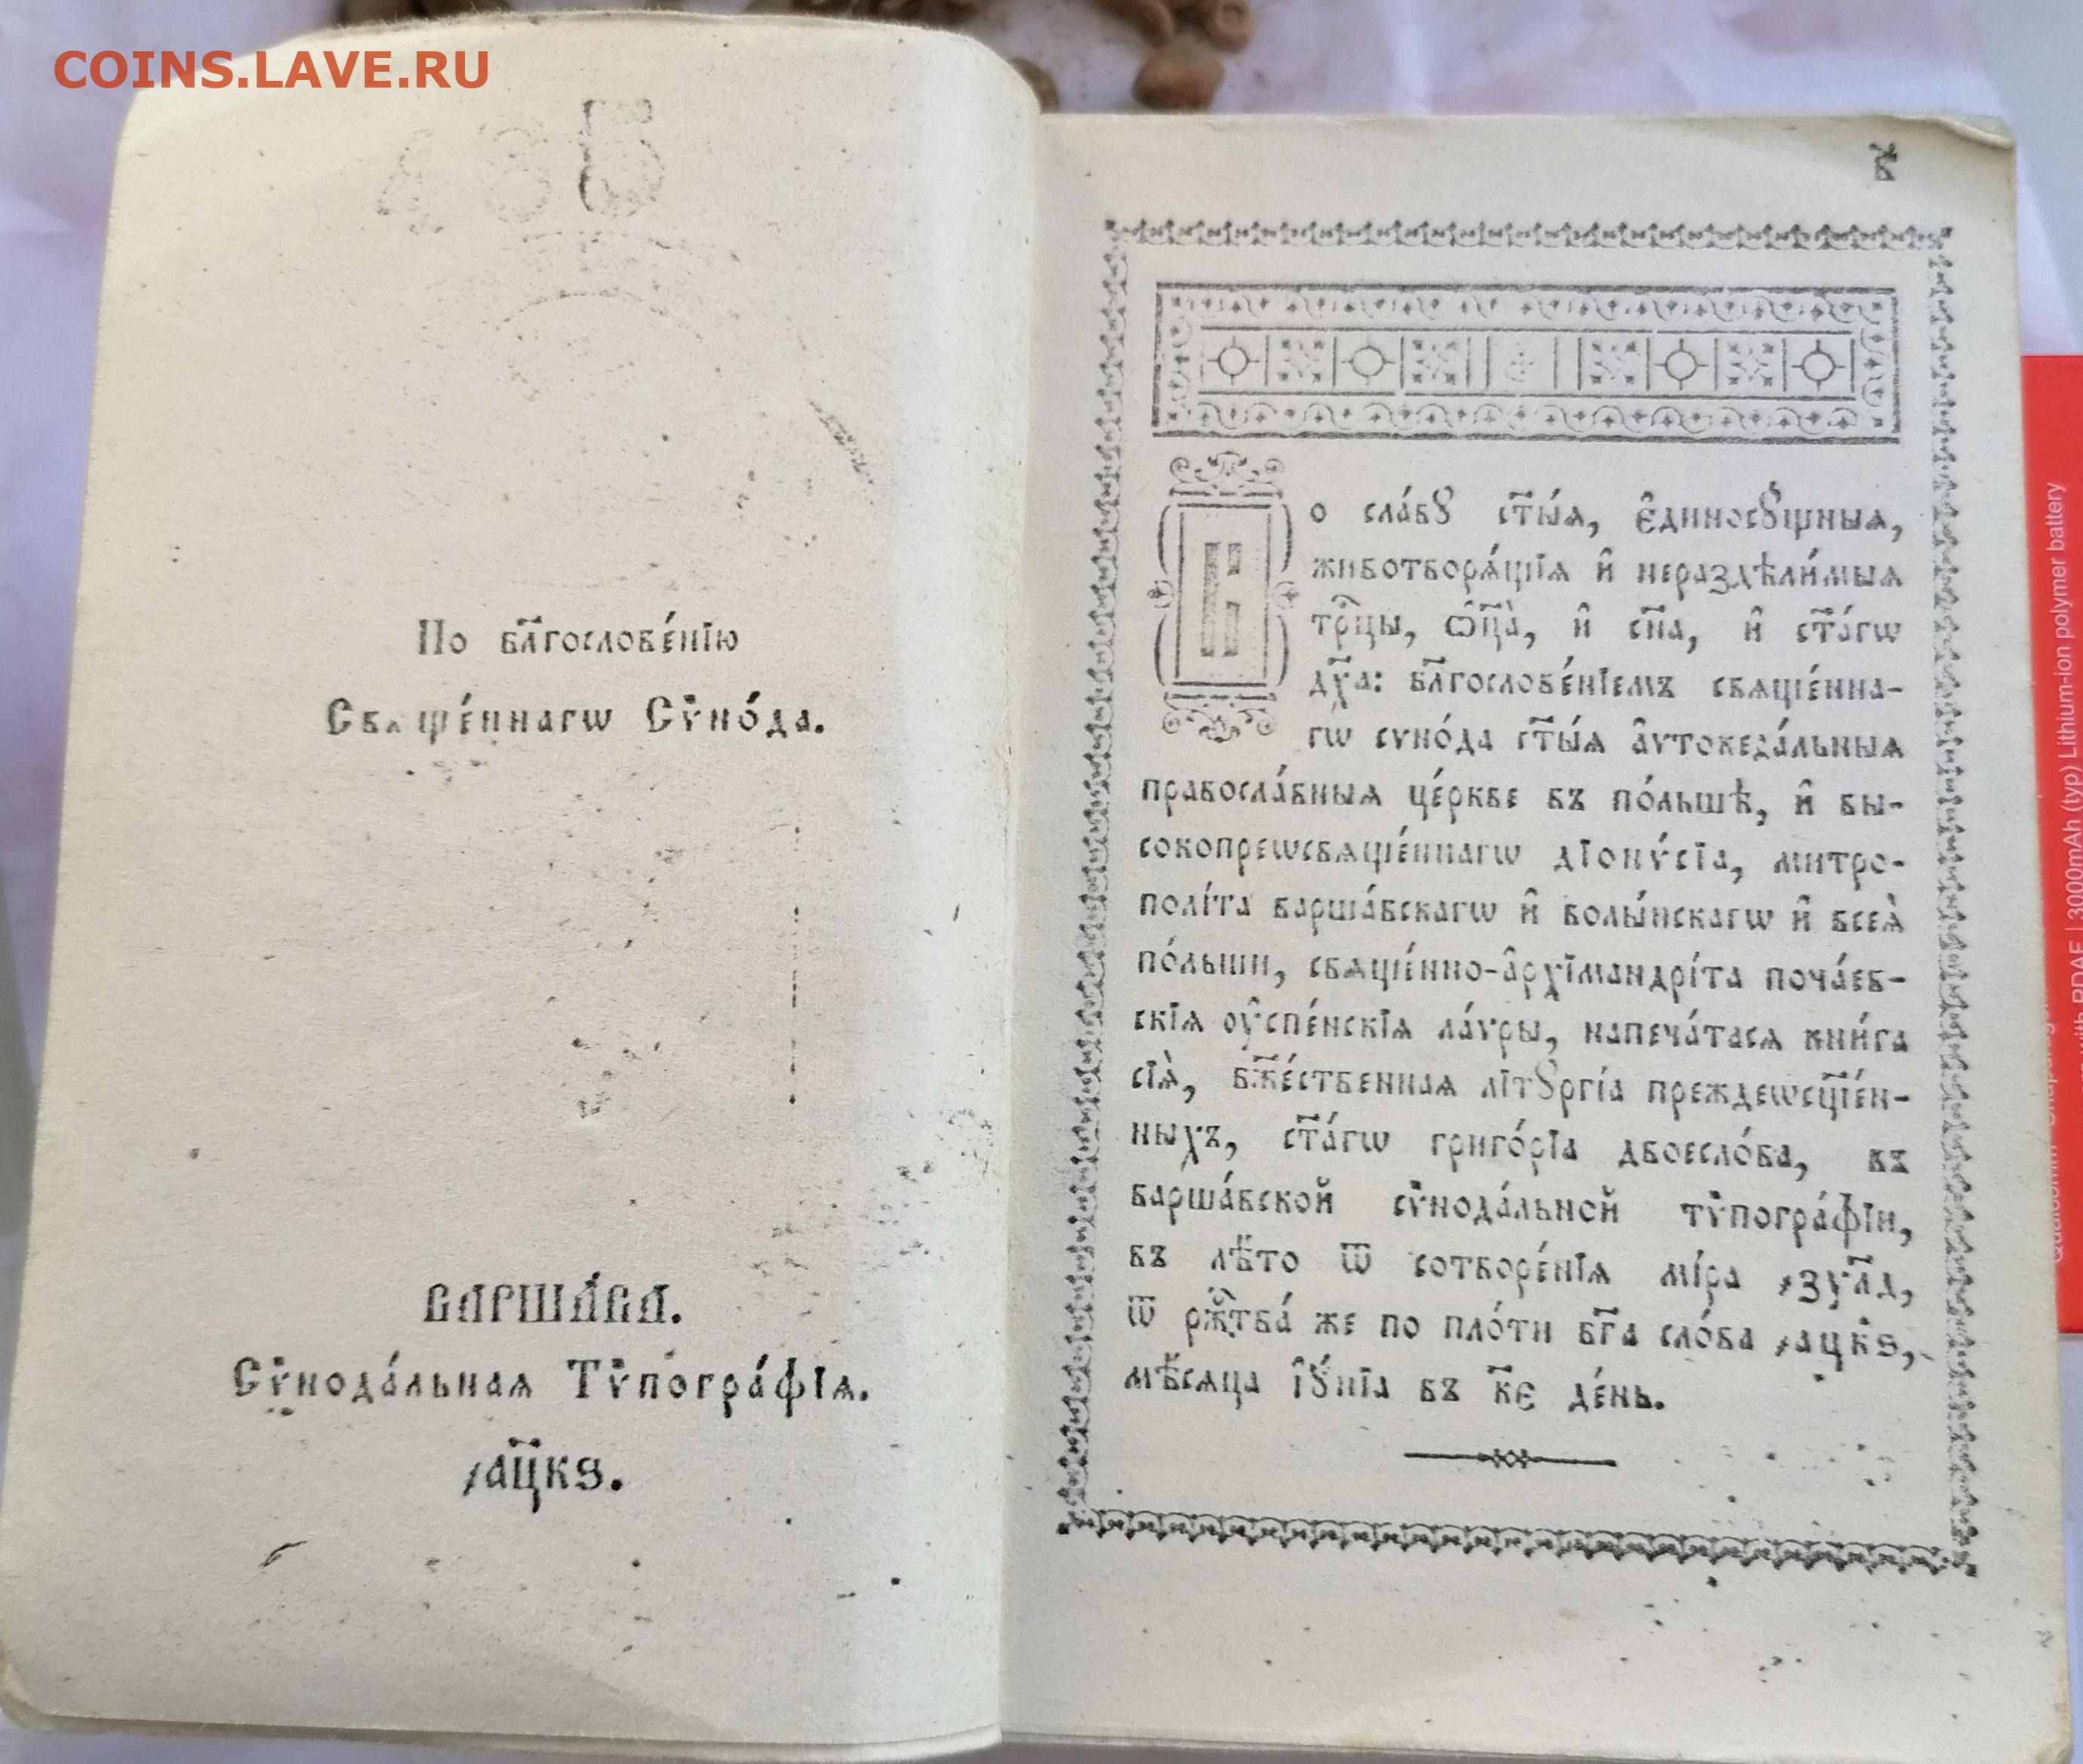 COINS.LAVE.RU
По бл҃гослове́нїю
Свѧще́ннагѡ Сѷно́да.
ВАРША́ВА.
Сѷнода́льнаѧ Тѷпогра́фїѧ.
҂ац҃кѕ.
о сла́вꙋ ст҃ы́ѧ, є҆диносꙋ́щныѧ,
животворѧ́щїѧ и҆ нераздѣли́мыѧ
трⷪ҇цы, ѻ҆ц҃а̀, и҆ сн҃а, и҆ ст҃а́гѡ
дх҃а: бл҃гослове́нїемъ свѧще́нна-
гѡ сѵно́да ст҃ы́ѧ а҆ѵтокеѳа́льныѧ
правосла́вныѧ це́ркве въ по́льшѣ, и҆ вы-
сокопреѡсвѧще́ннагѡ дїонѵ́сїа, митро-
полі́та варша́вскагѡ и҆ волы́нскагѡ и҆ всеѧ̀
по́льши, свѧще́нно-а҆рхїмандрі́та поча́ев-
скїѧ оу҆спе́нскїѧ ла́ѵры, напеча́тасѧ кни́га
сїѧ̀, бж҃е́ственнаѧ лїтꙋргі́а преждеѡсщ҃е́н-
ныхъ, ст҃а́гѡ григо́рїа двоесло́ва, въ
варша́вской сѷнода́льной тѷпогра́фїи,
въ лѣ́то ѿ сотворе́нїѧ мі́ра ҂зул҃д,
ѿ ржⷭ҇тва́ же по пло́ти бг҃а сло́ва ҂ацк҃ѕ,
мѣ́сѧца і҆ꙋ́нїа въ к҃є де́нь.
3000mAh (typ) Lithium-ion polymer battery